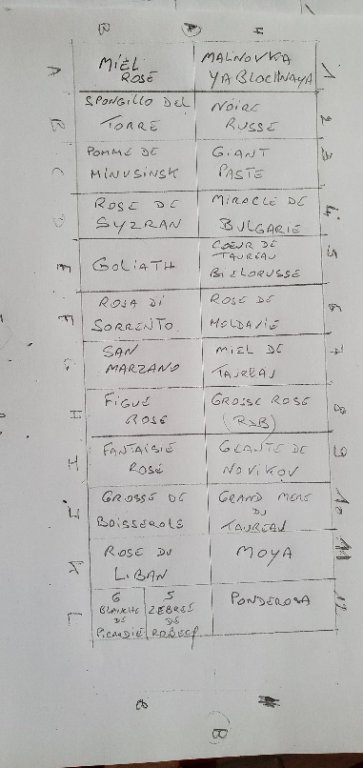 B A H
A MIEL ROSE MALNOVKA YABLOCHNAYA 1
B SPONGILLO DEL TORRE NOIRE RUSSE 2
C POMME DE MINUSINSK GIANT PASTE 3
D ROSE DE SYZRAN MIRACLE DE BULGARIE 4
E GOLIATH COEUR DE TAUREAU BIELORUSSE 5
F ROSA DI SORRENTO. ROSE DE MOLDAVIE 6
G SAN MARZANO MIEL DE TAUREAU 7
H FIGUE ROSE GROSSE ROSE (RDB) 8
I FANTAISIE ROSE GEANTE DE NOVIKOV 9
J GROSSE DE BOISSEROLS GRAND MERE DU TAUREAU 10
K ROSE DU LIBAN MOYA 11
L 6 BLANCHE DE PICARDIE 5 ZEBREE DE PONDEROSA 12
B
(B)